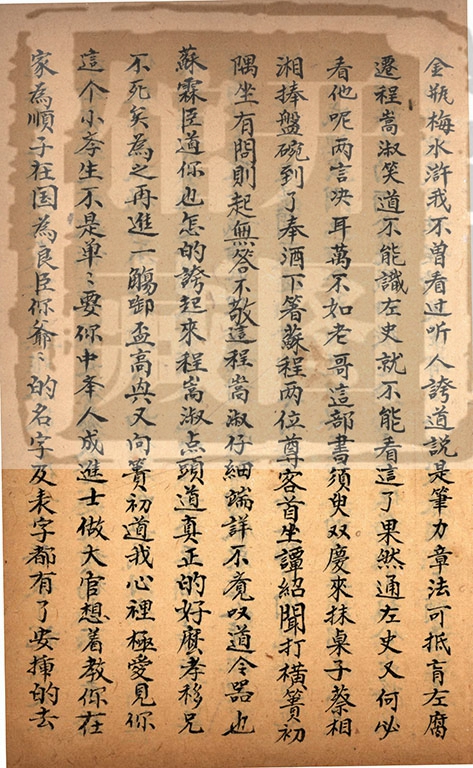 金瓶梅水滸我不曾看过听人誇道説是筆力章法可抵盲左腐
遷程嵩淑笑道不能讖左史就不能看這了果然通左史又何必
看他呢两言决耳萬不如老哥這部書須臾双慶來抹桌子蔡相
湘捧盤碗到了奉酒下箸蘇程两位尊客首坐譚紹聞打橫簣初
隅坐有問則起無答不敬這程嵩淑仔細端詳不竟叹道令器也
蘇霖臣道你也怎的誇起來程嵩淑点頭道真正的好麽孝移兄
不死矣為之再進一觴啣盃高兴又向簣初道我心裡極愛見你
這个小斈生不是单〻要你中举人成進士做大官想着教你在
家為順子在国為良臣你爺〻的名字及表字都有了安揷的去